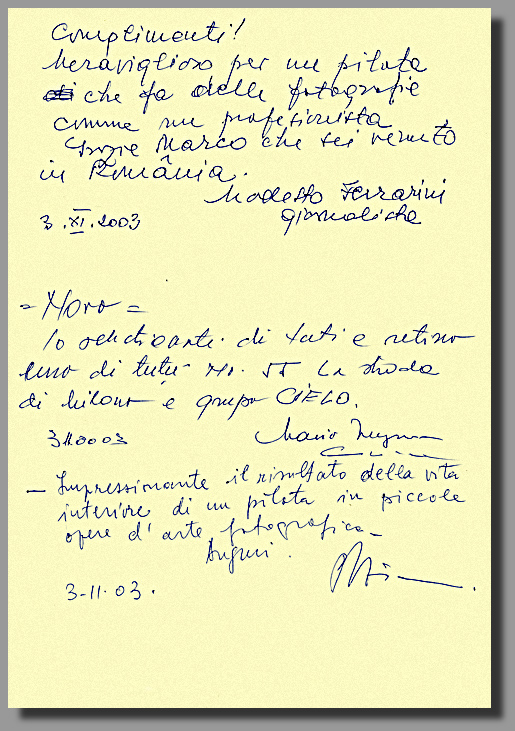 Complimenti!
Meraviglioso per un pilota
che fa delle fotografie
comme un profesionista
Grazie Marco che sei venuto
in România.
Modesto Ferrarini
giornalista
3.XI.2003
= Moro =
Io di tuti e
di tutu la stroda
di Milano e grupo CIELO.
3110003
Mario
- Impressionante il risultato della vita
interiore di un pilota in piccole
opere d'arte fotografica -
Auguri.
3-11.03.